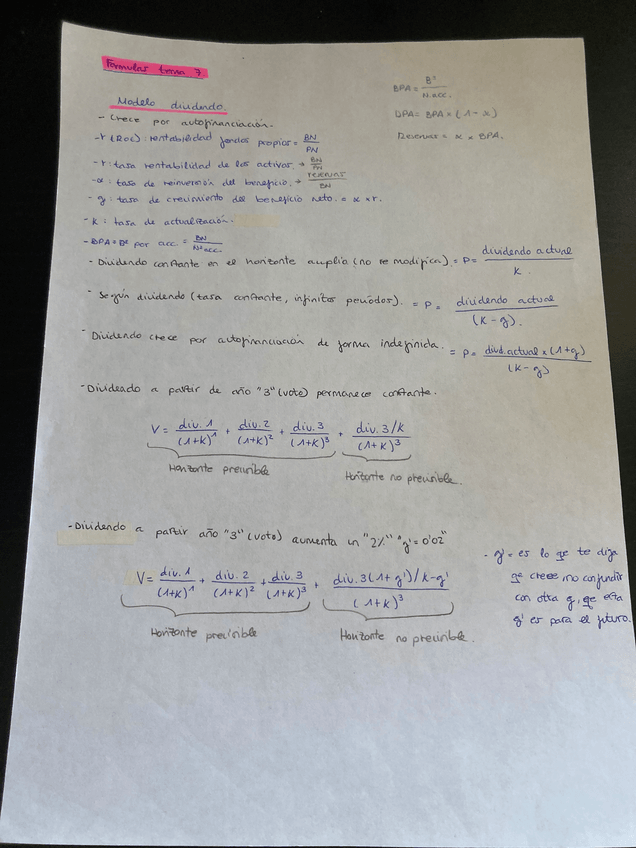 Formulas tema 7
BPA = Bº / N.acc.
Modelo dividendo.
DPA = BPA × (1 - α)
- Crece por autofinanciación.
Reservas = α × BPA.
- r (ROE): rentabilidad fondos propios = BN / PN
- r: tasa rentabilidad de los activos → BN / PN
- α: tasa de reinversión del beneficio. → reservas / BN
- g: tasa de crecimiento del beneficio neto. = α × r.
- K: tasa de actualización.
- BPA = Bº por acc. = BN / Nº acc.
- Dividendo constante en el horizonte amplio (no se modifica). = P = dividendo actual / K.
- Según dividendo (tasa constante, infinitos periodos). = P = dividendo actual / (K - g).
- Dividendo crece por autofinanciación de forma indefinida. = P = divid.actual × (1+g) / (K - g)
- Dividendo a partir de año "3" (vote) permanece constante.
V = div. 1 / (1+K)^1 + div. 2 / (1+K)^2 + div. 3 / (1+K)^3 + div. 3/K / (1+K)^3
Horizonte previsible Horizonte no previsible.
- Dividendo a partir año "3" (voto) aumenta un "2%" "g' = 0'02"
V = div. 1 / (1+K)^1 + div. 2 / (1+K)^2 + div. 3 / (1+K)^3 + div. 3 (1+g') / K-g' / (1+K)^3
Horizonte previsible Horizonte no previsible.
- g' = es lo qe te diga
qe crece, no confundir
con otra g, qe esta
g' es para el futuro.